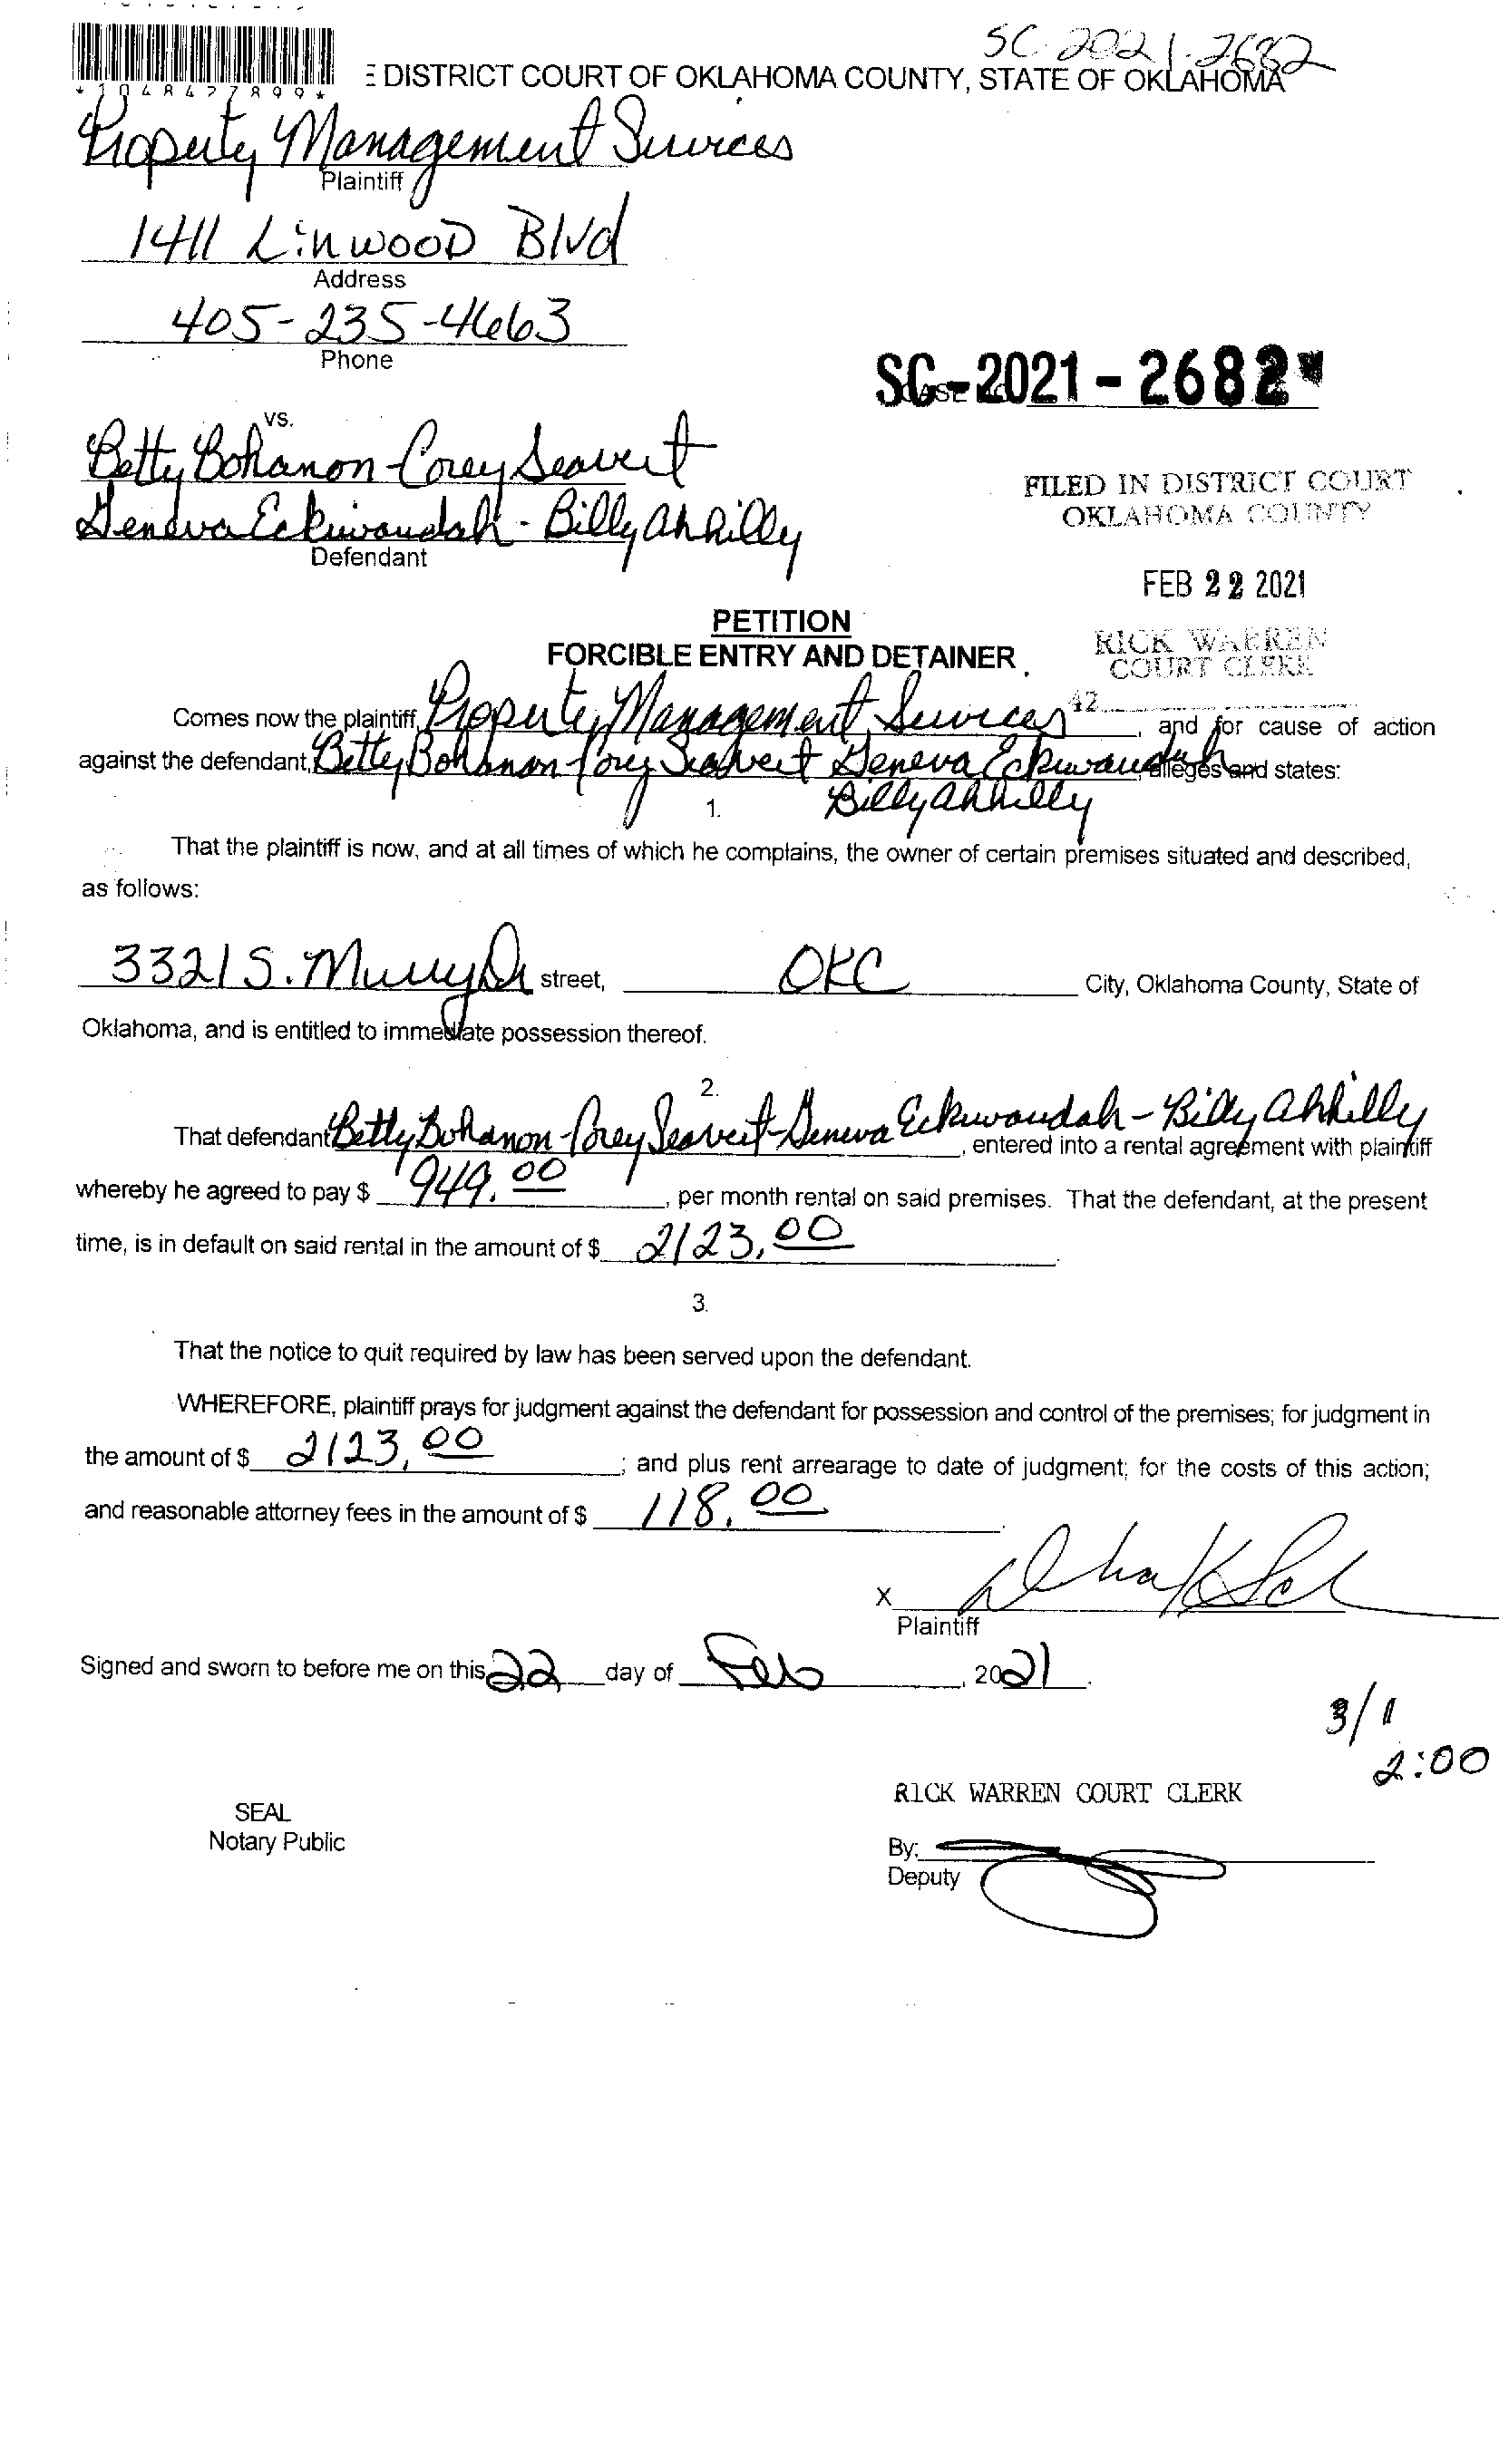 SC-2021-2682
DISTRICT COURT OF OKLAHOMA COUNTY, STATE OF OKLAHOMA
Property Management Services
Plaintiff
1411 Linwood Blvd
Address
405-235-4663
Phone
SC-2021-2682
vs.
Betty Bohanon - Corey Seavert
Geneva Eckiwaudah - Billy Ahhilly
Defendant
FILED IN DISTRICT COURT
OKLAHOMA COUNTY
FEB 22 2021
RICK WARREN
COURT CLERK
42
PETITION
FORCIBLE ENTRY AND DETAINER
Comes now the plaintiff, Property Management Services, and for cause of action
against the defendant, Betty Bohanon - Corey Seavert Geneva Eckiwaudah alleges and states:
Billy Ahhilly
1.
That the plaintiff is now, and at all times of which he complains, the owner of certain premises situated and described,
as follows:
3321 S. Murry Dr street, OKC City, Oklahoma County, State of
Oklahoma, and is entitled to immediate possession thereof.
2.
That defendant Betty Bohanon - Corey Seavert - Geneva Eckiwaudah - Billy Ahhilly, entered into a rental agreement with plaintiff
whereby he agreed to pay $ 949.00, per month rental on said premises. That the defendant, at the present
time, is in default on said rental in the amount of $ 2123.00.
3.
That the notice to quit required by law has been served upon the defendant.
WHEREFORE, plaintiff prays for judgment against the defendant for possession and control of the premises; for judgment in
the amount of $ 2123.00; and plus rent arrearage to date of judgment; for the costs of this action;
and reasonable attorney fees in the amount of $ 118.00.
X
Plaintiff
Signed and sworn to before me on this 22 day of Feb, 2021.
3/1
2:00
RICK WARREN COURT CLERK
SEAL
Notary Public
By:
Deputy